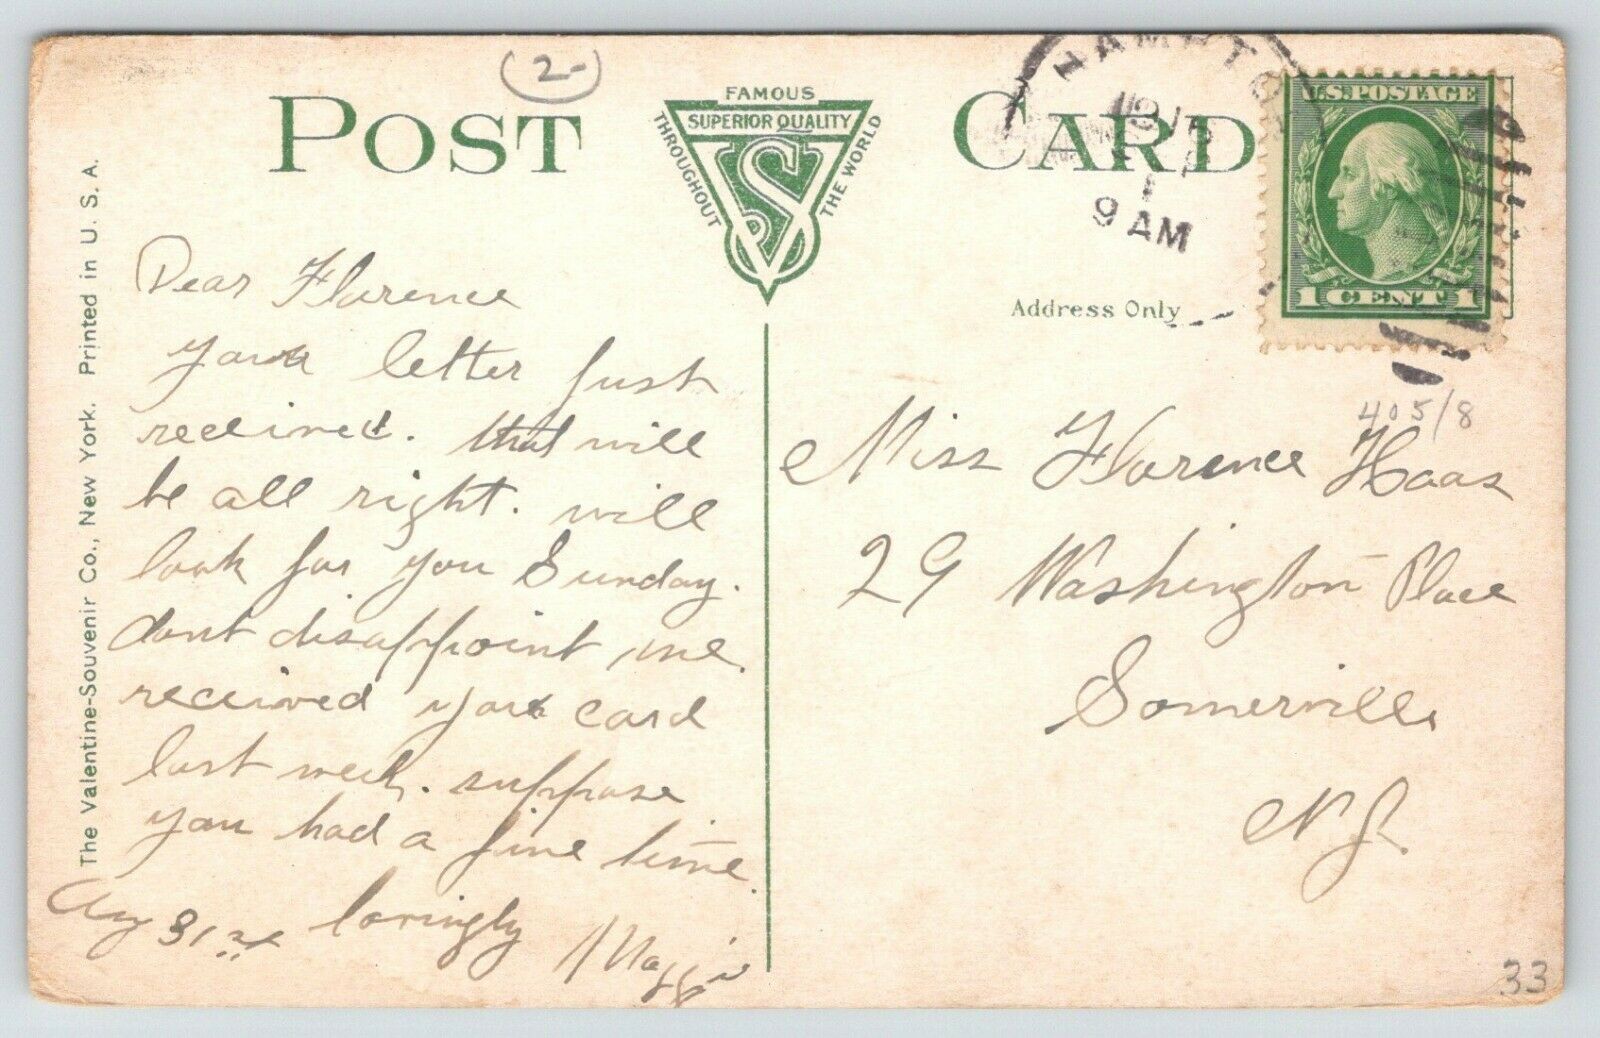 (2-)
POST CARD
FAMOUS
SUPERIOR QUALITY
THROUGHOUT THE WORLD
VS
9 AM
U.S. POSTAGE
1 CENT 1
Address Only
The Valentine-Souvenir Co., New York. Printed in U. S. A.
Dear Florence
your letter just
received. that will
be all right. will
look for you Sunday.
dont disappoint me.
received your card
last week. suppose
you had a fine time.
Aug 31st lovingly Maggie
405/8
Miss Florence Haas
29 Washington Place
Somerville
N.J.
33